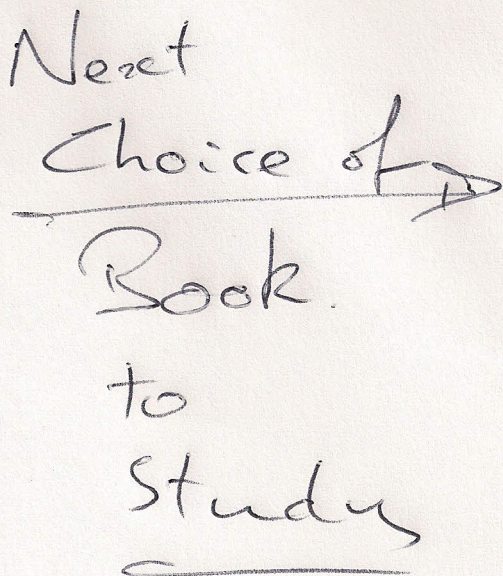 Next
Choice of
Book.
to
Study